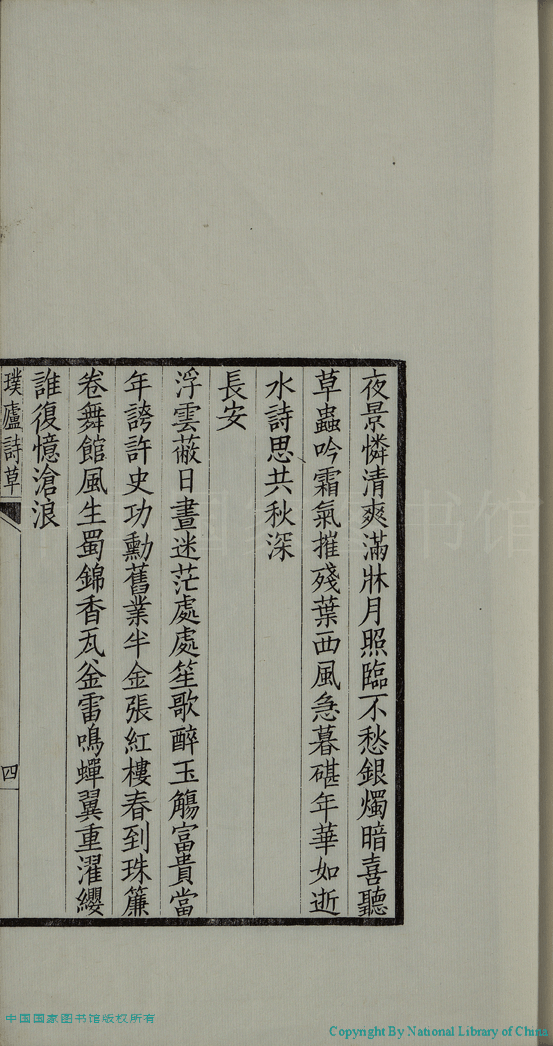 夜景憐清爽滿牀月照臨不愁銀燭暗喜聽
草蟲吟霜氣摧殘葉西風急暮碪年華如逝
水詩思共秋深
長安
浮雲蔽日晝迷茫處處笙歌醉玉觴富貴當
年誇許史功勳舊業半金張紅樓春到珠簾
卷舞館風生蜀錦香瓦釜雷鳴蟬翼重濯纓
誰復憶滄浪
璞廬詩草
四
中国国家图书馆版权所有
Copyright By National Library of China